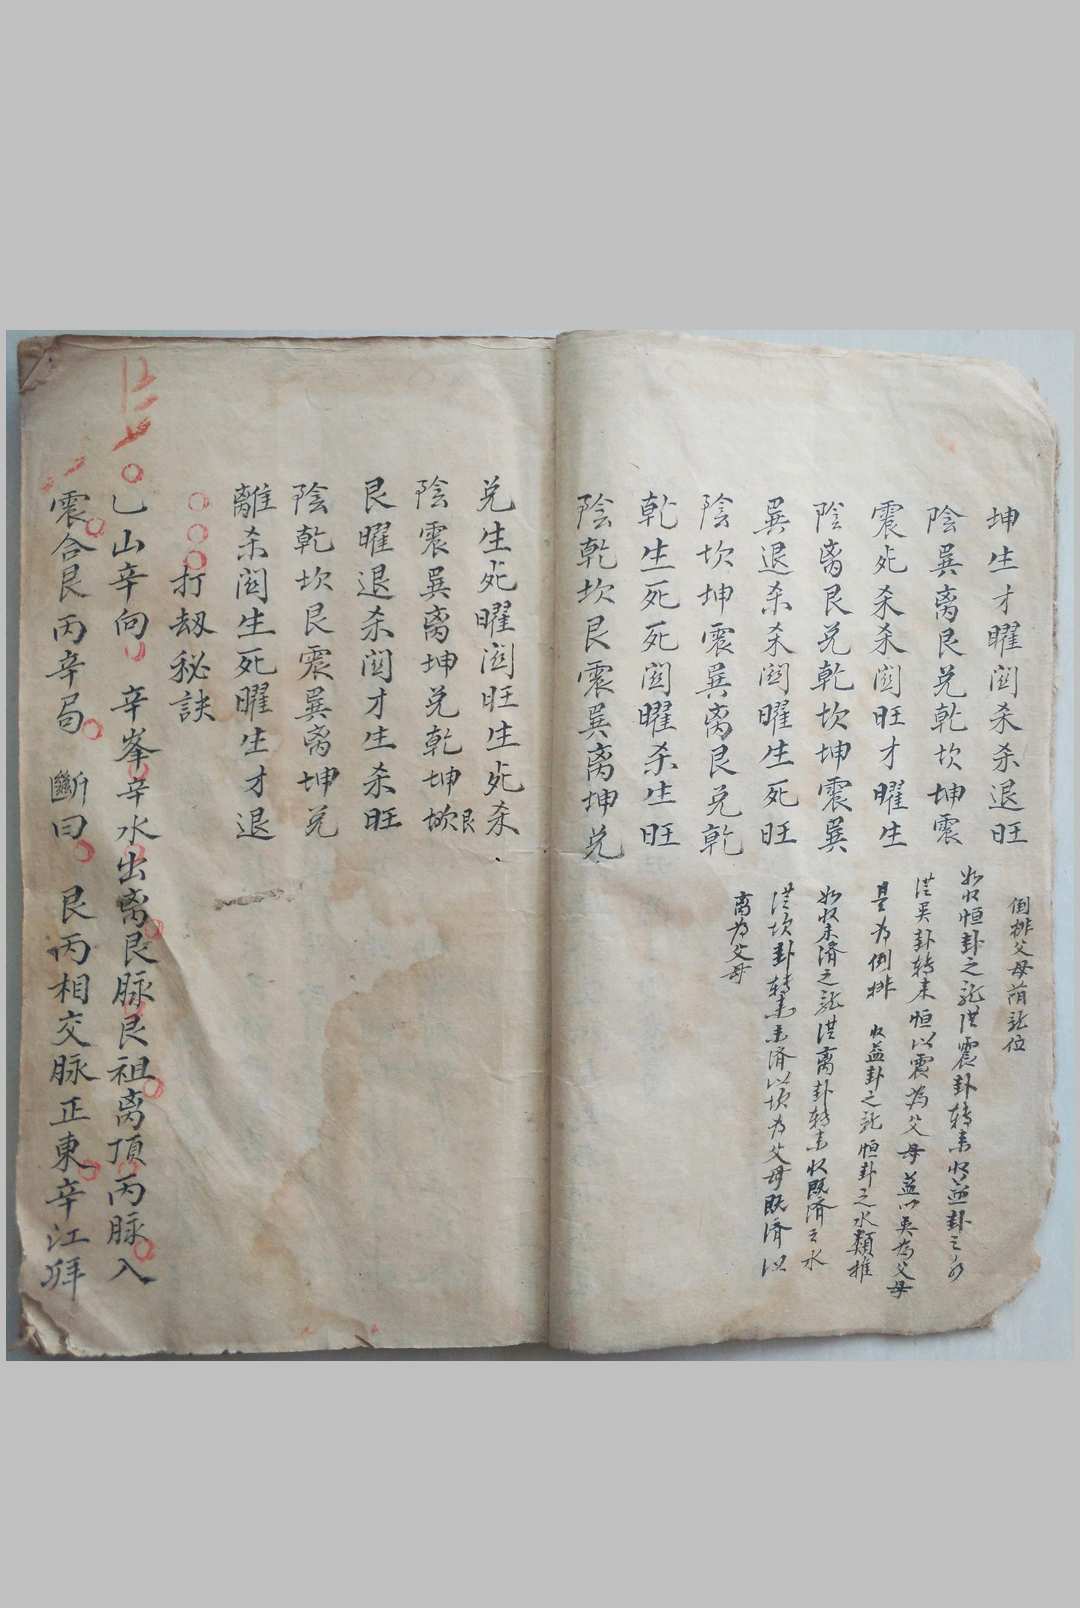 坤生才曜関杀杀退旺
陰巽离艮兑乾坎坤震
震死杀杀関旺才曜生
陰离艮兑乾坎坤震巽
巽退杀杀関曜生死旺
陰坎坤震巽离艮兑乾
乾生死死関曜杀生旺
陰乾坎艮震巽离坤兑
倒排父母荫龍位
如收恒卦之龍從震卦轉来收益卦之水
從巽卦轉来恒以震為父母益以巽為父母
是為倒排 收益卦之龍恒卦之水類推
如收未濟之龍從离卦轉来收既濟之水
從坎卦轉来未濟以坎为父母既濟以
离为父母
兑生死曜関旺生死杀
陰震巽离坤兑乾坤坎艮
艮曜退杀関才生杀旺
陰乾坎艮震巽离坤兑
離杀関生死曜生才退
打刼秘訣
乙山辛向 辛峯辛水出离艮脉艮祖离頂丙脉入
震合艮丙辛局 斷曰 艮丙相交脉正東辛江拜